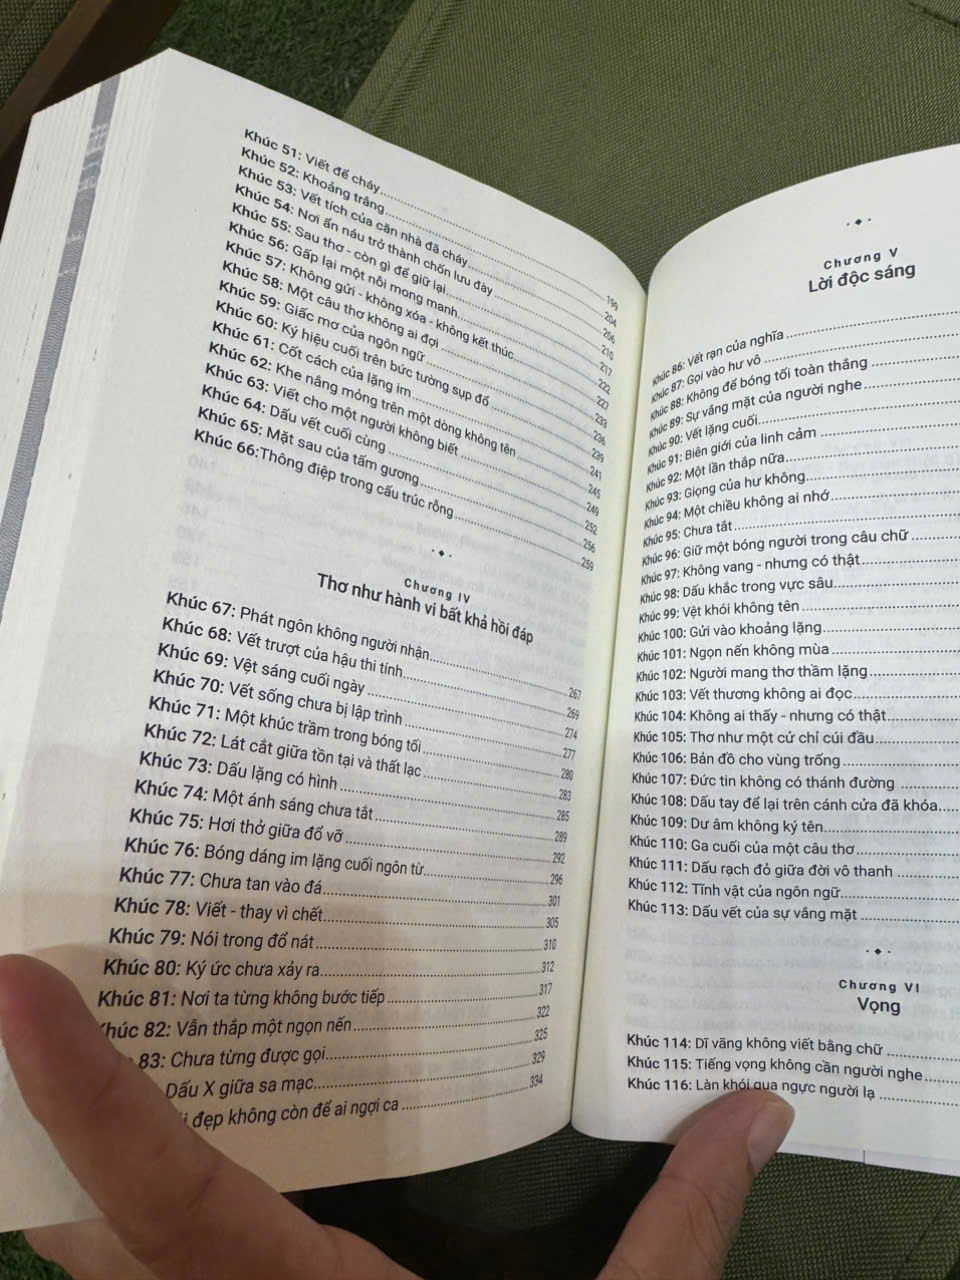 Khúc 51: Viết để cháy
Khúc 52: Khoảng trắng 199
Khúc 53: Vết tích của căn nhà đã cháy 204
Khúc 54: Nơi ẩn náu trở thành chốn lưu đày 206
Khúc 55: Sau thơ - còn gì để giữ lại 210
Khúc 56: Gấp lại một nỗi mong manh 217
Khúc 57: Không gửi - không xóa - không kết thúc 222
Khúc 58: Một câu thơ không ai đợi 227
Khúc 59: Giấc mơ của ngôn ngữ 233
Khúc 60: Ký hiệu cuối trên bức tường sụp đổ 236
Khúc 61: Cốt cách của lặng im 239
Khúc 62: Khe nắng mỏng trên một dòng không tên 241
Khúc 63: Viết cho một người không biết 245
Khúc 64: Dấu vết cuối cùng 249
Khúc 65: Mặt sau của tấm gương 252
Khúc 66:Thông điệp trong cấu trúc rỗng 256
259
Chương IV
Thơ như hành vi bất khả hồi đáp
Khúc 67: Phát ngôn không người nhận 267
Khúc 68: Vết trượt của hậu thi tính 269
Khúc 69: Vệt sáng cuối ngày 274
Khúc 70: Vết sống chưa bị lập trình 277
Khúc 71: Một khúc trầm trong bóng tối 280
Khúc 72: Lát cắt giữa tồn tại và thất lạc 283
Khúc 73: Dấu lặng có hình 285
Khúc 74: Một ánh sáng chưa tắt 289
Khúc 75: Hơi thở giữa đổ vỡ 292
Khúc 76: Bóng dáng im lặng cuối ngôn từ 296
Khúc 77: Chưa tan vào đá 301
Khúc 78: Viết - thay vì chết 305
Khúc 79: Nói trong đổ nát 310
Khúc 80: Ký ức chưa xảy ra 312
Khúc 81: Nơi ta từng không bước tiếp 317
Khúc 82: Vẫn thắp một ngọn nến 322
83: Chưa từng được gọi 325
Dấu X giữa sa mạc 329
đẹp không còn để ai ngợi ca 334
Chương V
Lời độc sáng
Khúc 86: Vết rạn của nghĩa
Khúc 87: Gọi vào hư vô
Khúc 88: Không để bóng tối toàn thắng
Khúc 89: Sự vắng mặt của người nghe
Khúc 90: Vết lặng cuối
Khúc 91: Biên giới của linh cảm
Khúc 92: Một lần thắp nữa
Khúc 93: Giọng của hư không
Khúc 94: Một chiều không ai nhớ
Khúc 95: Chưa tắt
Khúc 96: Giữ một bóng người trong câu chữ
Khúc 97: Không vang - nhưng có thật
Khúc 98: Dấu khắc trong vực sâu
Khúc 99: Vệt khói không tên
Khúc 100: Gửi vào khoảng lặng
Khúc 101: Ngọn nến không mùa
Khúc 102: Người mang thơ thầm lặng
Khúc 103: Vết thương không ai đọc
Khúc 104: Không ai thấy - nhưng có thật
Khúc 105: Thơ như một cử chỉ cúi đầu
Khúc 106: Bản đồ cho vùng trống
Khúc 107: Đức tin không có thánh đường
Khúc 108: Dấu tay để lại trên cánh cửa đã khóa
Khúc 109: Dư âm không ký tên
Khúc 110: Ga cuối của một câu thơ
Khúc 111: Dấu rạch đỏ giữa đời vô thanh
Khúc 112: Tĩnh vật của ngôn ngữ
Khúc 113: Dấu vết của sự vắng mặt
Chương VI
Vọng
Khúc 114: Dĩ vãng không viết bằng chữ
Khúc 115: Tiếng vọng không cần người nghe
Khúc 116: Làn khói qua ngực người lạ